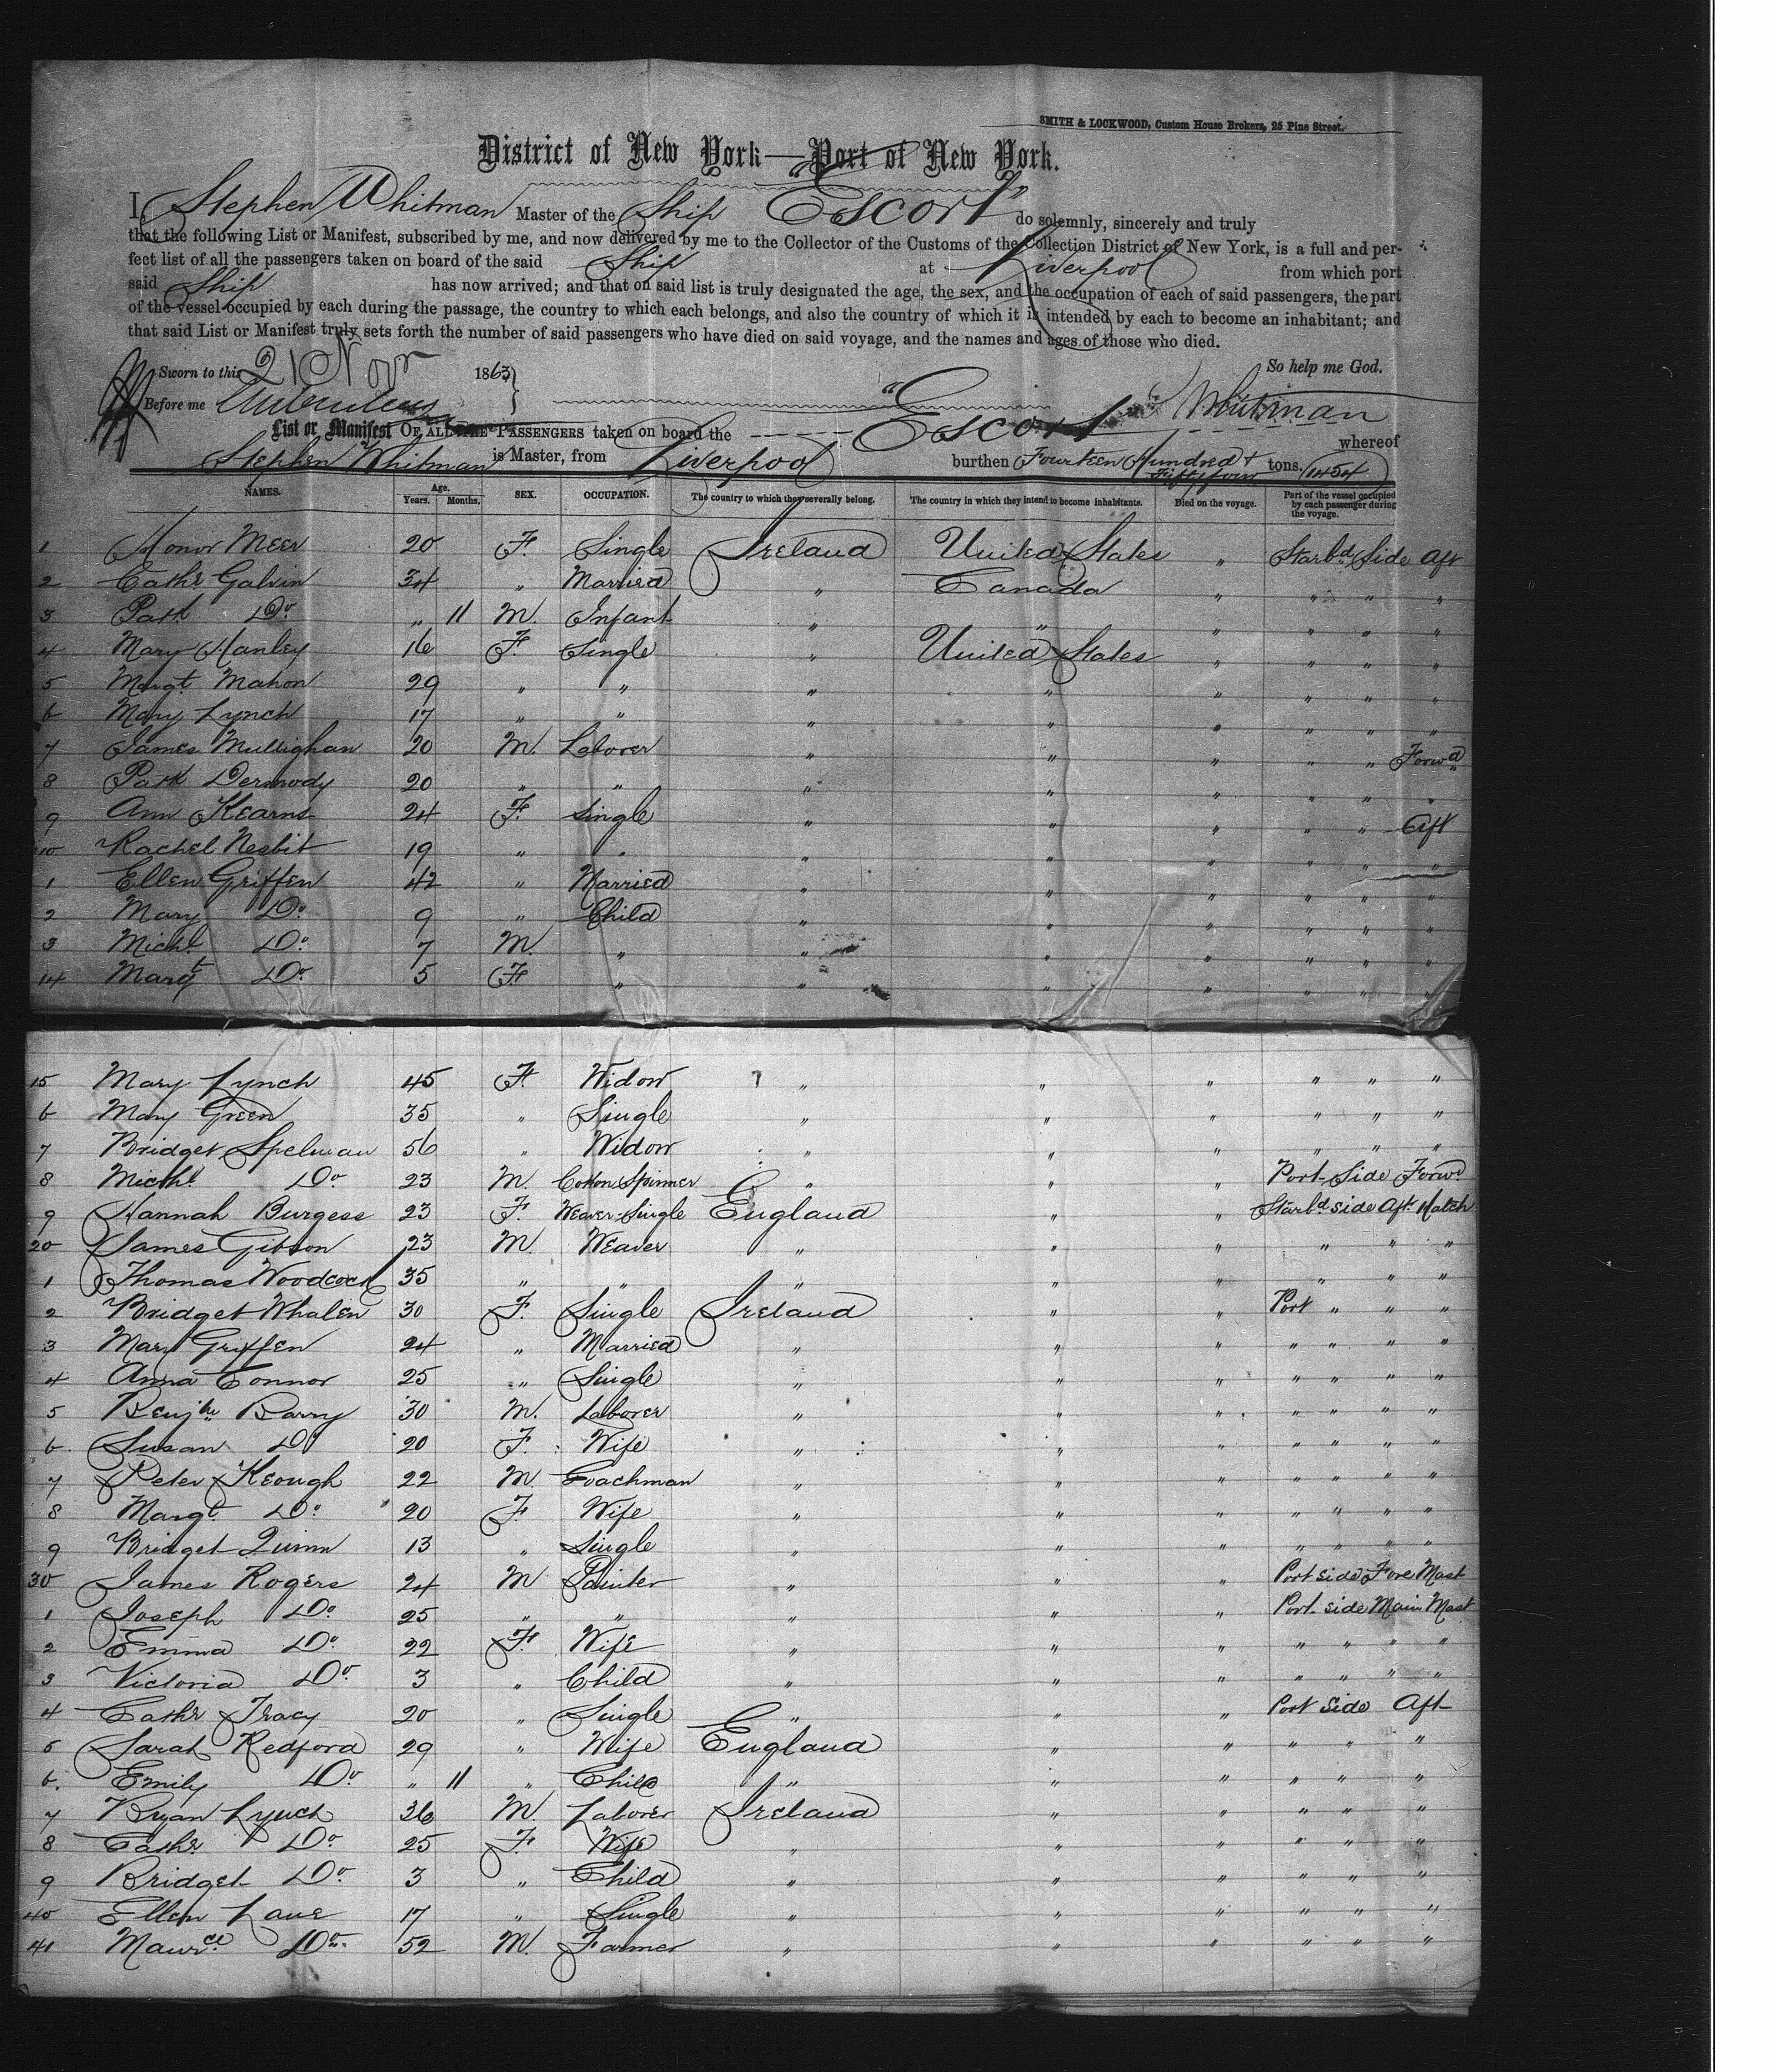 SMITH & LOCKWOOD, Custom House Brokers, 25 Pine Street.
District of New York—Port of New York.
I, Stephen Whitman Master of the Ship "Escort" do solemnly, sincerely and truly
that the following List or Manifest, subscribed by me, and now delivered by me to the Collector of the Customs of the Collection District of New York, is a full and per-
fect list of all the passengers taken on board of the said Ship at Liverpool from which port
said Ship has now arrived; and that on said list is truly designated the age, the sex, and the occupation of each of said passengers, the part
of the vessel occupied by each during the passage, the country to which each belongs, and also the country of which it is intended by each to become an inhabitant; and
that said List or Manifest truly sets forth the number of said passengers who have died on said voyage, and the names and ages of those who died.
Sworn to this 21 Novr 1863 So help me God.
Before me S Whitman
List or Manifest OF ALL THE PASSENGERS taken on board the "Escort whereof
Stephen Whitman is Master, from Liverpool burthen Fourteen Hundred + Fiftyfour tons. 1454
NAMES. Age. Years. Months. SEX. OCCUPATION. The country to which they severally belong. The country in which they intend to become inhabitants. Died on the voyage. Part of the vessel occupied by each passenger during the voyage.
1 Honor Meer 20 F. Single Ireland United States " Starbd Side Aft
2 Cathe Galvin 34 " Married " Canada " " " "
3 Patk Do " 11 M. Infant " " " " " "
4 Mary Hanley 16 F. Single " United States " " " "
5 Margt Mahon 29 " " " " " " " "
6 Mary Lynch 17 " " " " " " " "
7 James Mullighan 20 M. Laborer " " " " " Forwd
8 Patk Dermody 20 " " " " " " " "
9 Ann Kearns 24 F. Single " " " " " Aft
10 Rachel Nesbit 19 " " " " " " " "
1 Ellen Griffen 42 " Married " " " " " "
2 Mary Do 9 " Child " " " " " "
3 Michl Do 7 M. " " " " " " "
14 Margt Do 5 F " " " " " " "
15 Mary Lynch 45 F. Widow " " " " " "
6 Mary Green 35 " Single " " " " " "
7 Bridget Spelman 56 " Widow " " " " " "
8 Michl Do 23 M. Cotton Spinner " " " Port Side Forwd
9 Hannah Burgess 23 F. Weaver-Single England " " Starbd side Aft Hatch
20 James Gibson 23 M. Weaver " " " " " "
1 Thomas Woodcock 35 " " " " " " " "
2 Bridget Whalen 30 F. Single Ireland " " Port " " "
3 Mary Griffen 24 " Married " " " " " " "
4 Anna Connor 25 " Single " " " " " " "
5 Benjn Barry 30 M. Laborer " " " " " " "
6. Susan Do 20 F. Wife " " " " " " "
7 Peter Keough 22 M Coachman " " " " " " "
8 Margt Do 20 F. Wife " " " " " " "
9 Bridget Quinn 13 " Single " " " " " " "
30 James Rogers 24 M Painter " " " Port side Fore Mast
1 Joseph Do 25 " " " " " Port side Main Mast
2 Emma Do 22 F. Wife " " " " " " "
3 Victoria Do 3 " Child " " " " " " "
4 Cathe Tracy 20 " Single " " " Port side Aft
5 Sarah Redford 29 " Wife England " " " " "
6. Emily Do " 11 " Child " " " " " "
7 Bryan Lynch 36 M. Laborer Ireland " " " " "
8 Cathe Do 25 F. Wife " " " " " "
9 Bridget Do 3 " Child " " " " " "
40 Ellen Lane 17 " Single " " " " " "
41 Maurce Do 52 M. Farmer " " " " " "